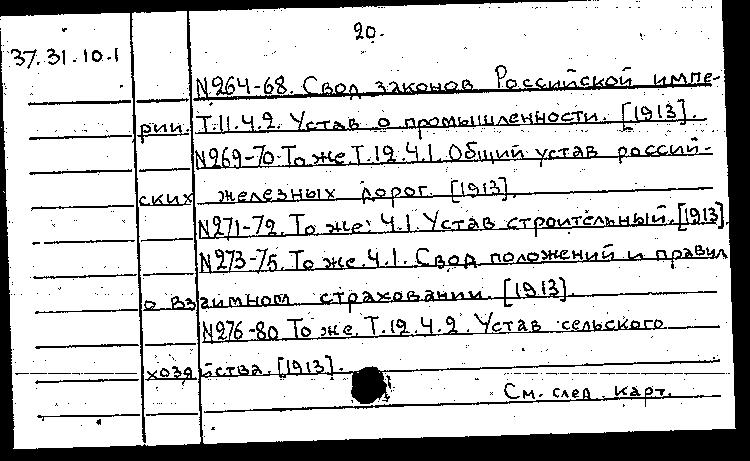 20.
37.31.10.1
N264-68. Свод законов Российской импе-
рии. Т.11.4.2. Устав о промышленности. [1913].
N269-70. То же. Т.12.4.1. Общий устав россий-
ских железных дорог. [1913].
N271-72. То же: 4.1. Устав строительный. [1913].
N273-75. То же. 4.1. Свод положений и правил
о взаимном страховании. [1913].
N276-80 То же. Т.12.4.2. Устав сельского
хозяйства. [1913].
См. след. карт.